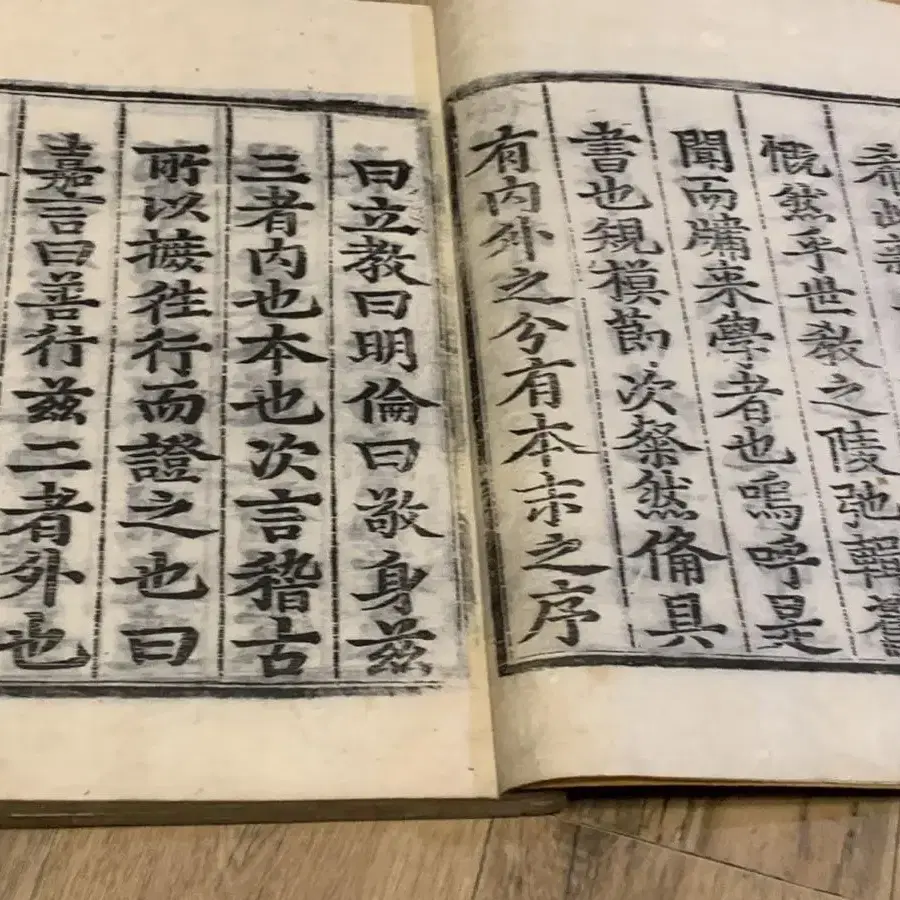 慨然乎世教之陵弛輯舊
聞而牖來學者也嗚呼是
書也規模節次粲然備具
有內外之分有本末之序
曰立教曰明倫曰敬身茲
三者內也本也次言稽古
所以摭往行而證之也曰
嘉言曰善行茲二者外也